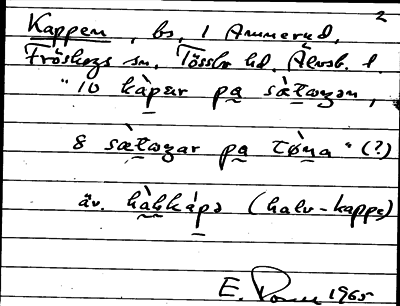 2
Kappen, bs, i Ammerud,
Fröskogs sn, Tössbo hd, Älvsb. l.
"10 kàpar pa sàtwgən,
8 sætwgar pa tøna" (?)
äv. hàlıkápə (halv-kappe)
E. 1965